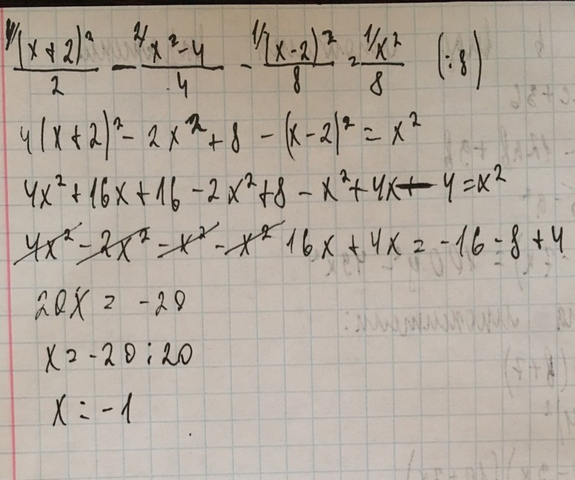 ⁴⁽(x+2)²/2 - ²⁽x²-4/4 - ¹⁽(x-2)²/8 = ¹⁽x²/8 (:8)
4(x+2)² - 2x² + 8 - (x-2)² = x²
4x² + 16x + 16 - 2x² + 8 - x² + 4x - 4 = x²
4x² - 2x² - x² - x² 16x + 4x = -16 - 8 + 4
20x = -20
x = -20 : 20
x = -1